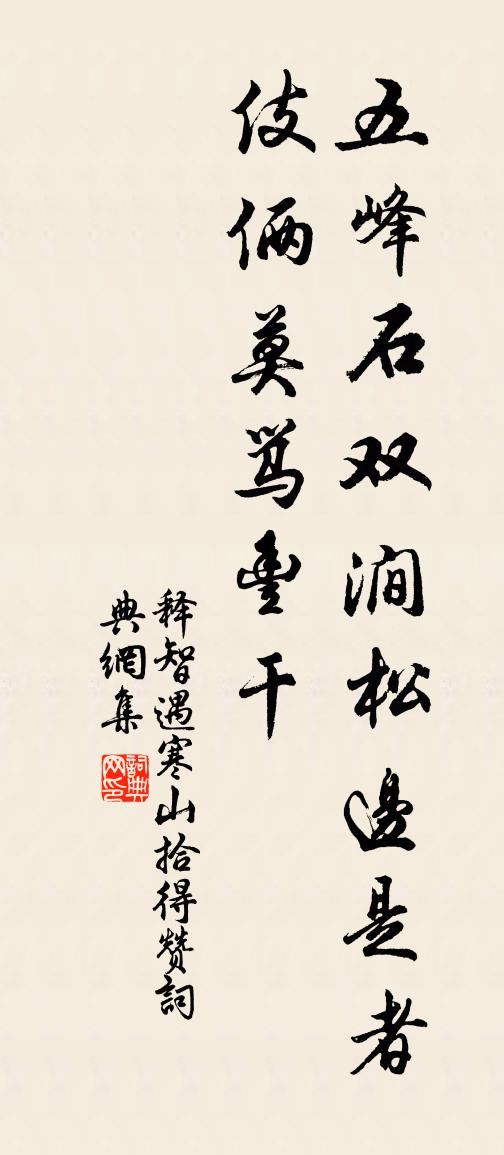 五峰石双涧松邊是者
伎俩莫骂豊干
释智遇寒山拾得赞詞
典網集
詞典
网印